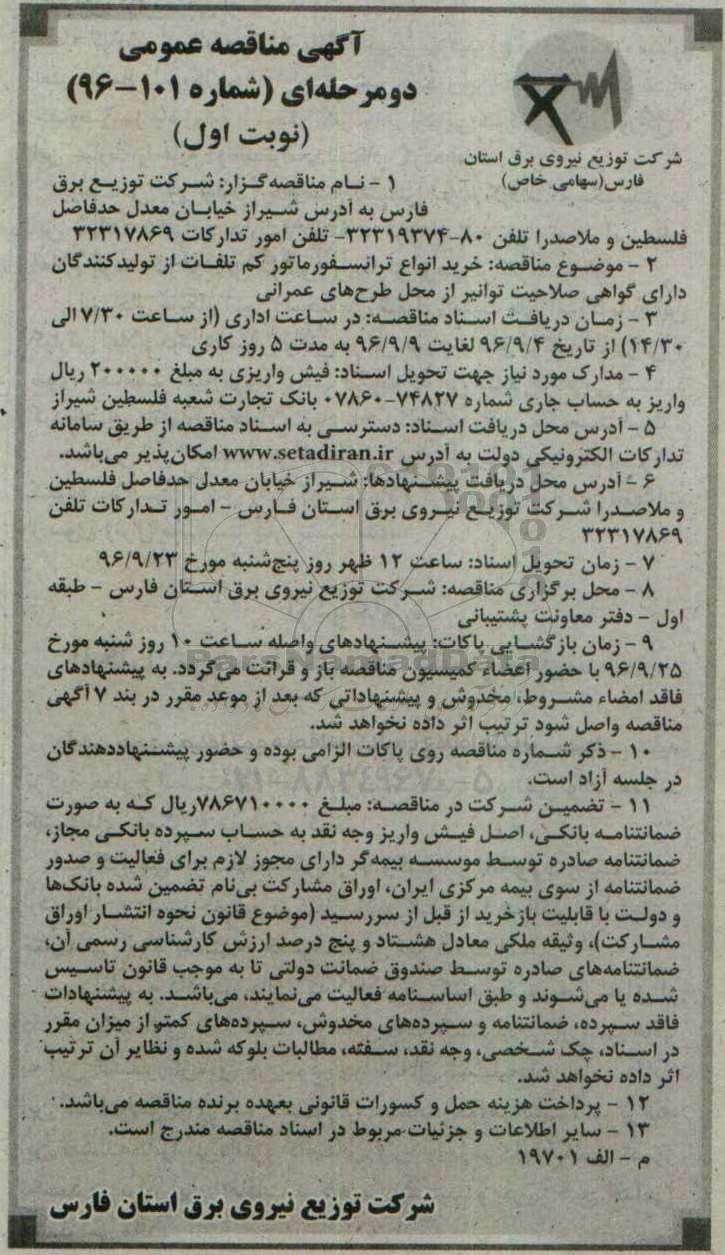 آگهی مناقصه عمومی
دومرحله‌ای (شماره ۱۰۱-۹۶)
(نوبت اول)
شرکت توزیع نیروی برق استان
فارس(سهامی خاص)
۱ - نام مناقصه‌گزار: شرکت توزیع برق
فارس به آدرس شیراز خیابان معدل حدفاصل
فلسطین و ملاصدرا تلفن ۸۰-۳۲۳۱۹۳۷۴- تلفن امور تدارکات ۳۲۳۱۷۸۶۹
۲ - موضوع مناقصه: خرید انواع ترانسفورماتور کم تلفات از تولیدکنندگان
دارای گواهی صلاحیت توانیر از محل طرح‌های عمرانی
۳ - زمان دریافت اسناد مناقصه: در ساعت اداری (از ساعت ۷/۳۰ الی
۱۴/۳۰) از تاریخ ۹۶/۹/۴ لغایت ۹۶/۹/۹ به مدت ۵ روز کاری
۴ - مدارک مورد نیاز جهت تحویل اسناد: فیش واریزی به مبلغ ۲۰۰۰۰۰ ریال
واریز به حساب جاری شماره ۷۴۸۲۷-۰۷۸۶۰ بانک تجارت شعبه فلسطین شیراز
۵ - آدرس محل دریافت اسناد: دسترسی به اسناد مناقصه از طریق سامانه
تدارکات الکترونیکی دولت به آدرس www.setadiran.ir امکان‌پذیر می‌باشد.
۶ - آدرس محل دریافت پیشنهادها: شیراز خیابان معدل حدفاصل فلسطین
و ملاصدرا شرکت توزیع نیروی برق استان فارس - امور تدارکات تلفن
۳۲۳۱۷۸۶۹
۷ - زمان تحویل اسناد: ساعت ۱۲ ظهر روز پنج‌شنبه مورخ ۹۶/۹/۲۳
۸ - محل برگزاری مناقصه: شرکت توزیع نیروی برق استان فارس - طبقه
اول - دفتر معاونت پشتیبانی
۹ - زمان بازگشایی پاکات: پیشنهادهای واصله ساعت ۱۰ روز شنبه مورخ
۹۶/۹/۲۵ با حضور اعضاء کمیسیون مناقصه باز و قرائت می‌گردد. به پیشنهادهای
فاقد امضاء مشروط، مخدوش و پیشنهاداتی که بعد از موعد مقرر در بند ۷ آگهی
مناقصه واصل شود ترتیب اثر داده نخواهد شد.
۱۰ - ذکر شماره مناقصه روی پاکات الزامی بوده و حضور پیشنهاددهندگان
در جلسه آزاد است.
۱۱ - تضمین شرکت در مناقصه: مبلغ ۷۸۶۷۱۰۰۰۰ریال که به صورت
ضمانتنامه بانکی، اصل فیش واریز وجه نقد به حساب سپرده بانکی مجاز،
ضمانتنامه صادره توسط موسسه بیمه‌گر دارای مجوز لازم برای فعالیت و صدور
ضمانتنامه از سوی بیمه مرکزی ایران، اوراق مشارکت بی‌نام تضمین شده بانک‌ها
و دولت با قابلیت بازخرید از قبل از سررسید (موضوع قانون نحوه انتشار اوراق
مشارکت)، وثیقه ملکی معادل هشتاد و پنج درصد ارزش کارشناسی رسمی آن،
ضمانتنامه‌های صادره توسط صندوق ضمانت دولتی تا به موجب قانون تاسیس
شده یا می‌شوند و طبق اساسنامه فعالیت می‌نمایند، می‌باشد. به پیشنهادات
فاقد سپرده، ضمانتنامه و سپرده‌های مخدوش، سپرده‌های کمتر از میزان مقرر
در اسناد، چک شخصی، وجه نقد، سفته، مطالبات بلوکه شده و نظایر آن ترتیب
اثر داده نخواهد شد.
۱۲ - پرداخت هزینه حمل و کسورات قانونی بعهده برنده مناقصه می‌باشد.
۱۳ - سایر اطلاعات و جزئیات مربوط در اسناد مناقصه مندرج است.
م - الف ۱۹۷۰۱
شرکت توزیع نیروی برق استان فارس